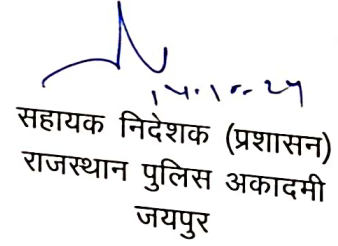 14.10.24
सहायक निदेशक (प्रशासन)
राजस्थान पुलिस अकादमी
जयपुर